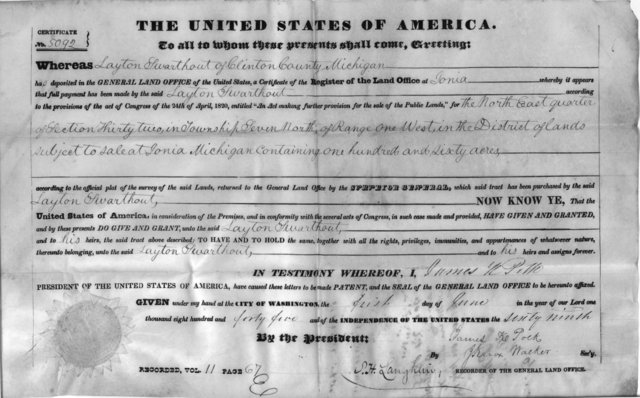 THE UNITED STATES OF AMERICA.
CERTIFICATE
No. 5092
To all to whom these presents shall come, Greeting:
WHEREAS Layton Swarthout of Clinton County, Michigan
ha s deposited in the GENERAL LAND OFFICE of the United States, a Certificate of the Register of the Land Office at Ionia whereby it appears
that full payment has been made by the said Layton Swarthout according
to the provisions of the act of Congress of the 24th of April, 1820, entitled "An Act making further provision for the sale of the Public Lands," for the North East quarter
of Section Thirty two, in Township Seven North, of Range One West, in the District of lands
subject to sale at Ionia Michigan containing one hundred and sixty acres,
according to the official plat of the survey of the said Lands, returned to the General Land Office by the SURVEYOR GENERAL, which said tract has been purchased by the said
Layton Swarthout, NOW KNOW YE, That the
United States of America, in consideration of the Premises, and in conformity with the several acts of Congress, in such case made and provided, HAVE GIVEN AND GRANTED,
and by these presents DO GIVE AND GRANT, unto the said Layton Swarthout,
and to his heirs, the said tract above described: TO HAVE AND TO HOLD the same, together with all the rights, privileges, immunities, and appurtenances of whatsoever nature,
thereunto belonging, unto the said Layton Swarthout, and to his heirs and assigns forever.
IN TESTIMONY WHEREOF, I, James K Polk
PRESIDENT OF THE UNITED STATES OF AMERICA, have caused these letters to be made PATENT, and the SEAL of the GENERAL LAND OFFICE to be hereunto affixed.
GIVEN under my hand at the CITY OF WASHINGTON, the first day of June in the year of our Lord one
thousand eight hundred and forty five and of the INDEPENDENCE OF THE UNITED STATES the sixty ninth
By the President: James K Polk
By J Knox Walker Sec'y.
RECORDED, VOL 11 PAGE 67 S. H. Laughlin, RECORDER OF THE GENERAL LAND OFFICE.